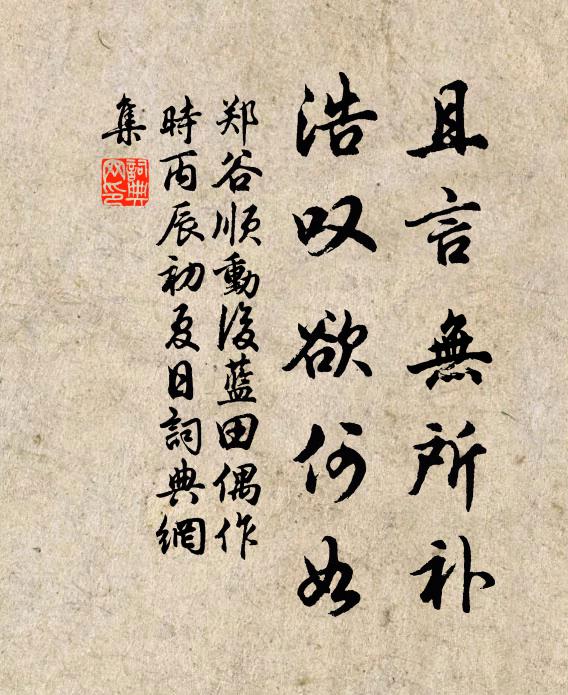 且言無所补
浩叹欲何如
郑谷顺動後藍田偶作
時丙辰初夏日詞典網
集
詞典
网印